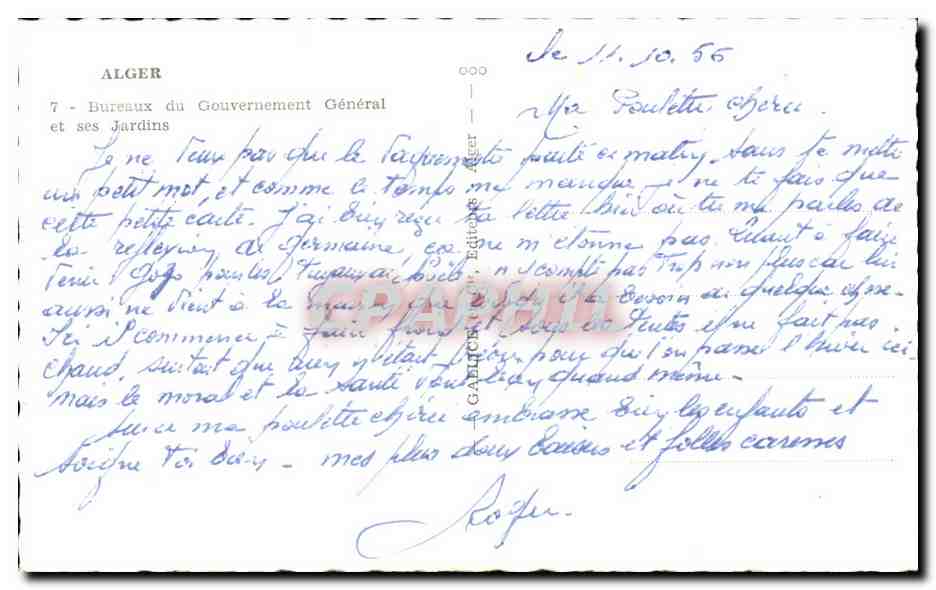 ALGER
7 - Bureaux du Gouvernement Général
et ses Jardins
GALLICE Editeurs Alger
CPAPHIL
le 11.10.56
Ma Poulette chérie
Je ne veux pas que le vaguemestre parte ce matin sans te mettre
un petit mot, et comme le temps me manque je ne te fais que
cette petite carte. J'ai bien reçu ta lettre hier où tu me parles de
la reflexion de Germaine, ça ne m'étonne pas. Quant à faire
venir Gogo pour les n'y compte pas trop non plus car lui
aussi ne vient à la que besoin de quelque chose.
Ici il commence à faire froid et sous les tentes il ne fait pas
chaud, surtout que rien n'était prévu pour que l'on passe l'hiver ici
mais le moral et la santé vont bien quand même.
ma poulette chérie embrasse bien les enfants et
soigne toi bien - mes plus doux baisers et folles caresses
Roger